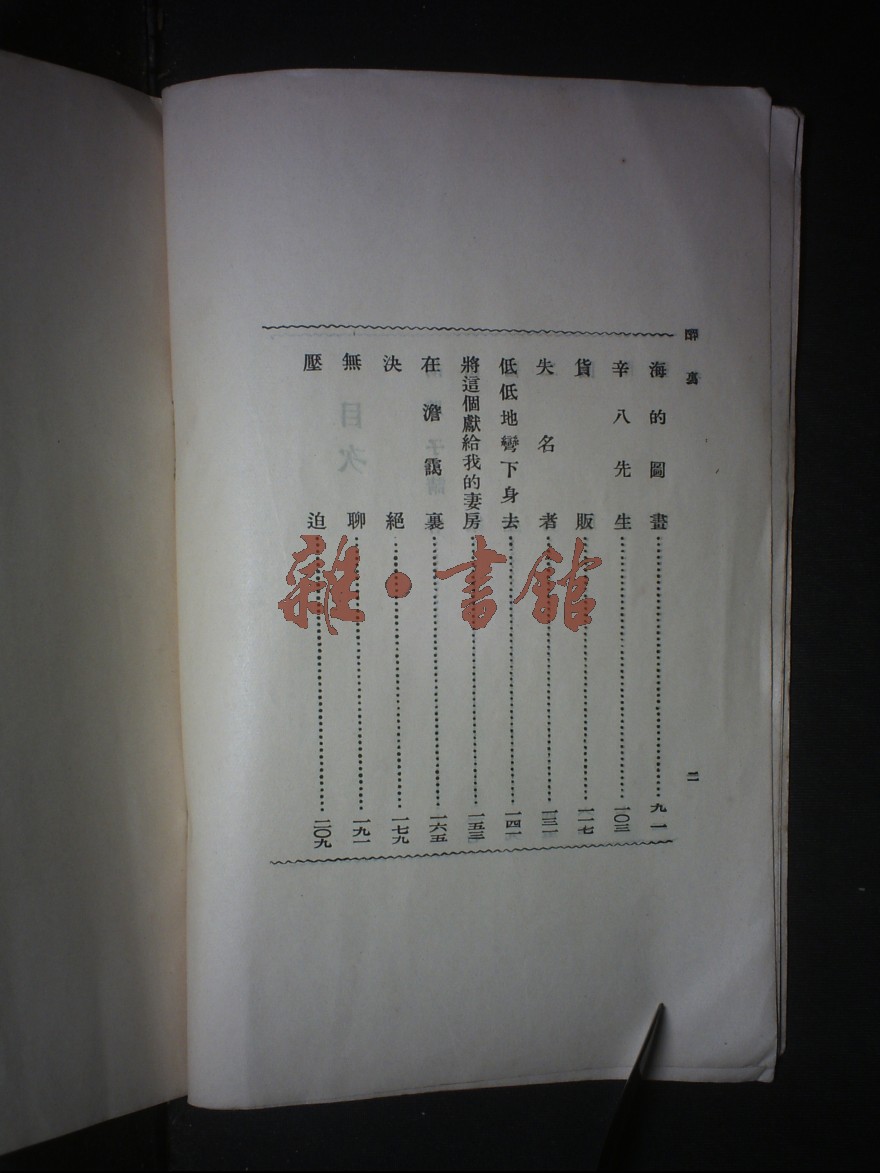 醉裏
二
海的圖畫 九一
辛八先生 一〇三
貨販 一一七
失名者 一三一
低低地彎下身去 一四一
將這個獻給我的妻房 一五三
在澹靄裏 一六五
決絕 一七九
無聊 一九一
壓迫 二〇九
目次
雜·書館